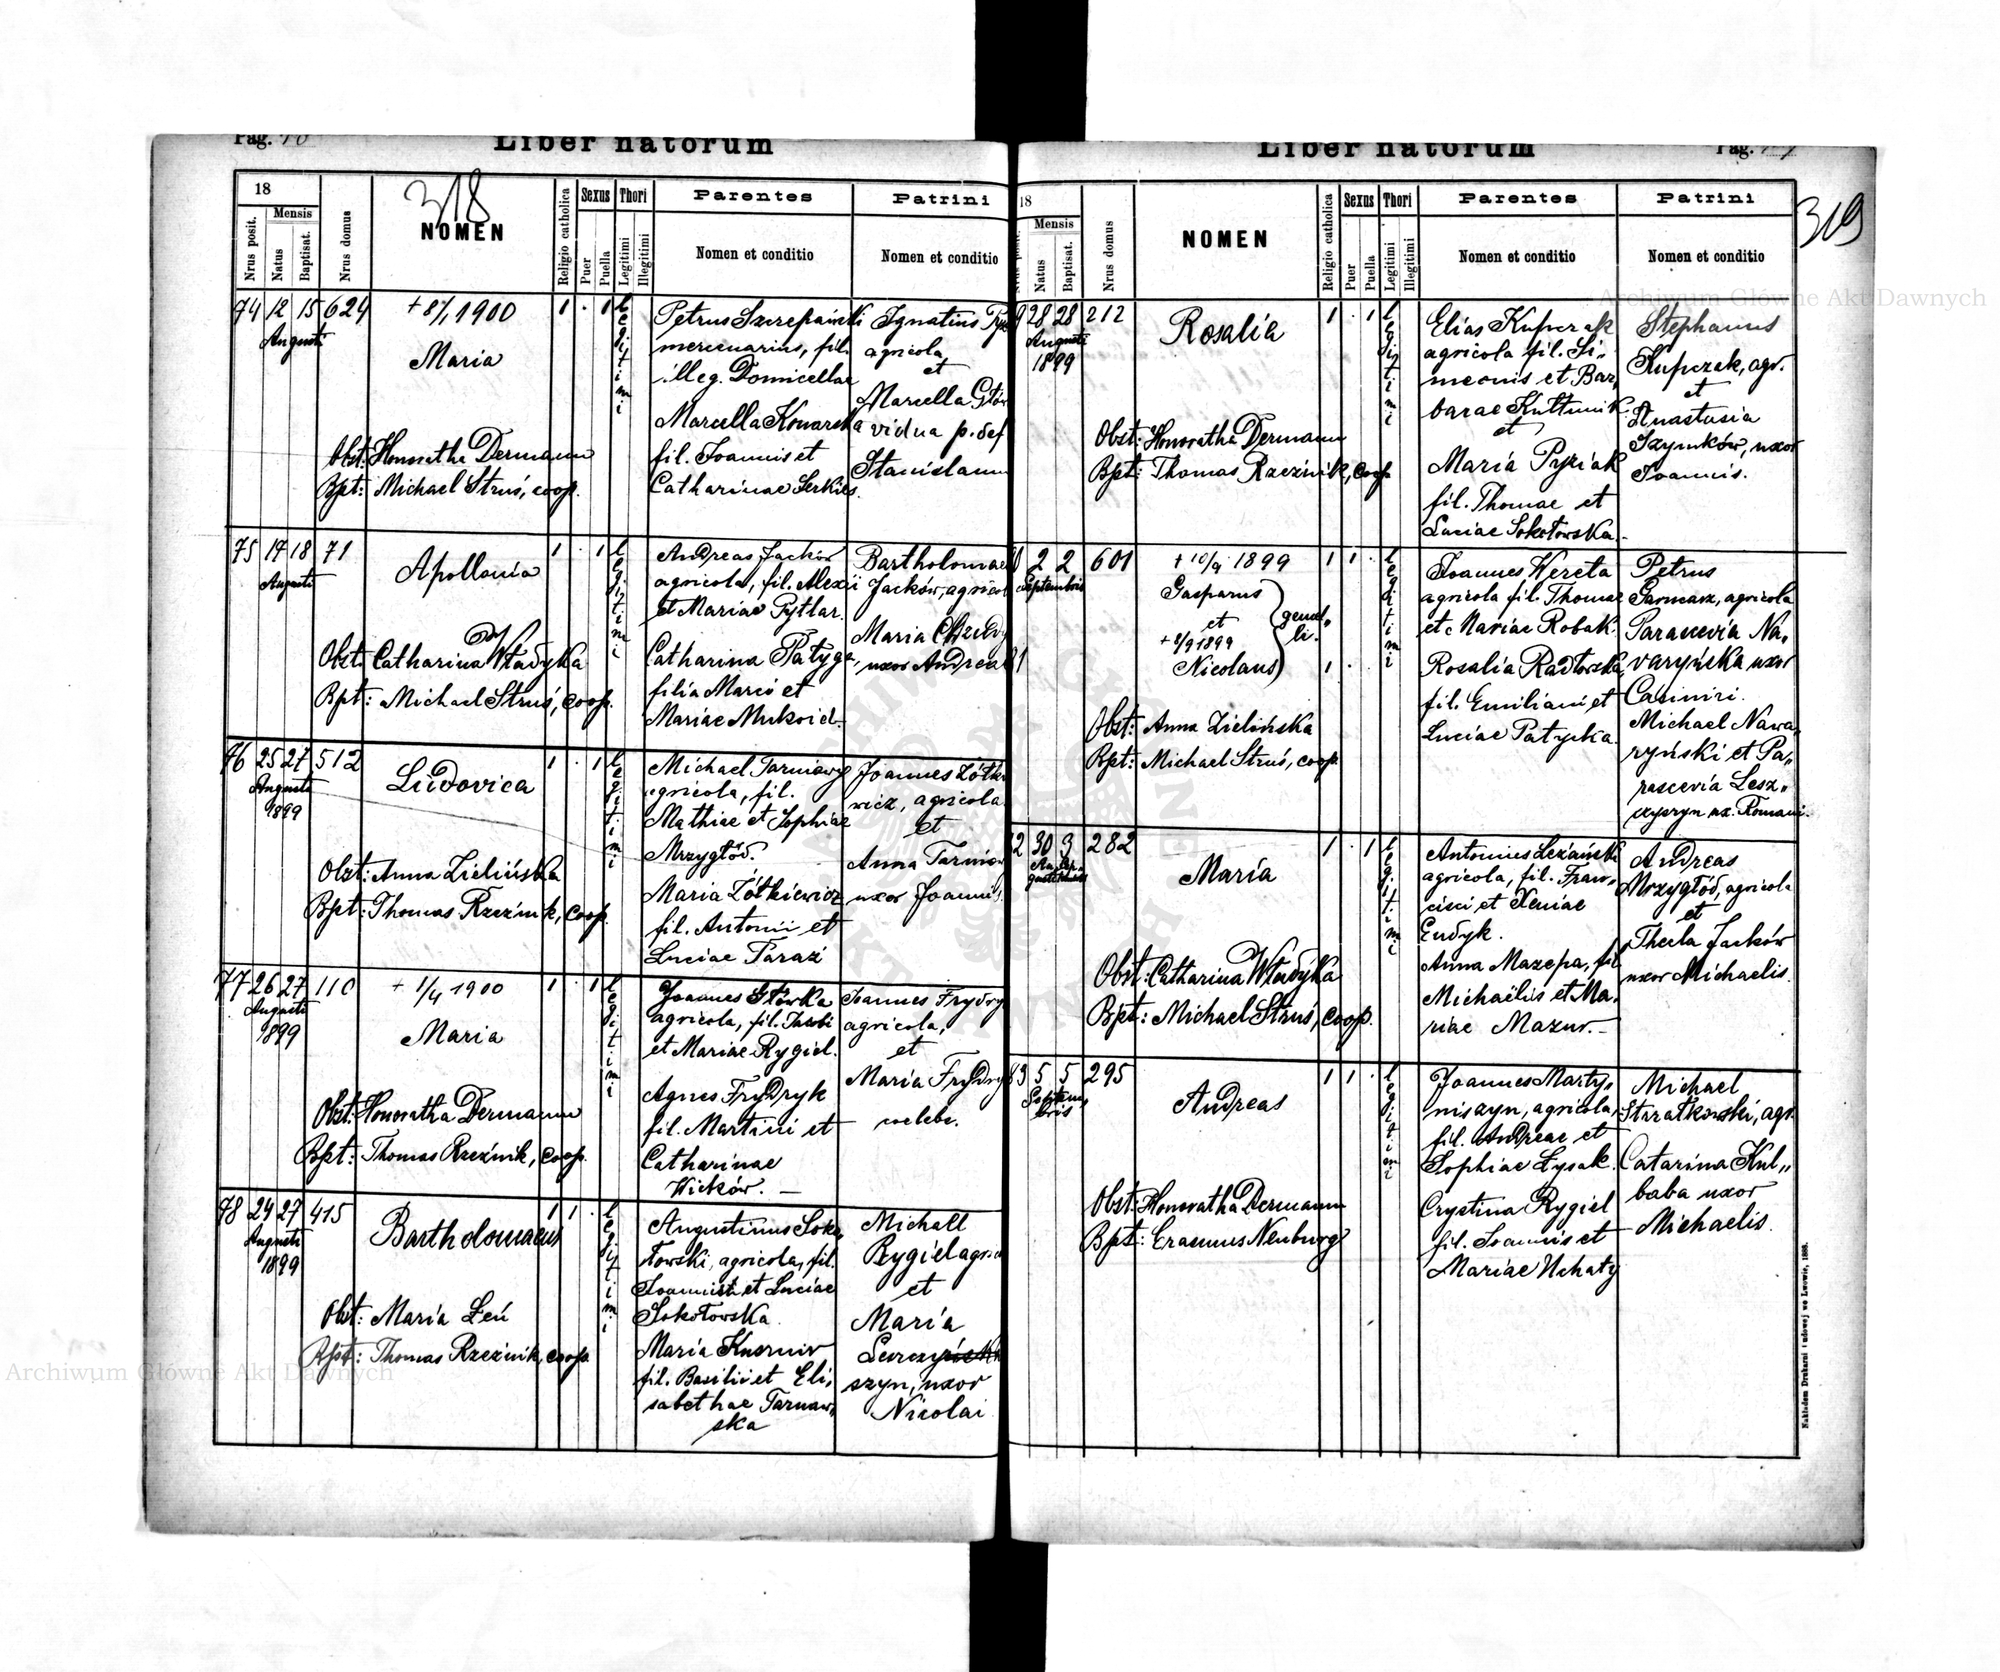 Pag. 70
Liber natorum
318
18
Nrus posit.
Mensis
Natus
Baptisat.
Nrus domus
NOMEN
Religio catholica
Sexus
Puer
Puella
Thori
Legitimi
Illegitimi
Parentes
Nomen et conditio
Patrini
Nomen et conditio
74 12 15 624 + 8/1 1900 1 . 1 legitimi
Augusti
Maria
Obst: Honoratha Dermann
Bpt: Michael Struś, coop.
Petrus Szczepański
mercenarius, fil.
illeg. Domicellae
Marcella Konarska
fil. Joannis et
Catharinae Serkies
Ignatius
agricola
et
Marcella Głów
vidua p. def
Stanislaum
75 17 18 71 1 . 1 legitimi
Augusti
Apollonia
Obst: Catharina Władyka
Bpt: Michael Struś, coop.
Andreas Jacków
agricola, fil. Alexii
et Mariae Pytlar.
Catharina Patyga
filia Marci et
Mariae Mukoid
Bartholomae
Jacków, agricol
Maria
uxor Andreae
76 25 27 512 1 . 1 legitimi
Augusti
1899
Ludovica
Obst: Anna Zielińska
Bpt: Thomas Rzeźnik, coop.
Michael Tarniowy
agricola, fil.
Mathiae et Sophiae
Mrzygłód.
Maria Żółkiewicz
fil. Antonii et
Luciae Paraż
Joannes Żółkie
wicz, agricola
et
Anna Tarniow
uxor Joannis.
77 26 27 110 + 1/4 1900 1 . 1 legitimi
Augusti
1899
Maria
Obst: Honoratha Dermann
Bpt: Thomas Rzeźnik, coop.
Joannes Główka
agricola, fil. Jacobi
et Mariae Rygiel.
Agnes Frydryk
fil. Martini et
Catharinae
Wićków. —
Joannes Frydry
agricola,
et
Maria Frydry
caelebs.
78 24 27 415 1 1 . legitimi
Augusti
1899
Bartholomaeus
Obst: Maria Łeń
Bpt: Thomas Rzeźnik, coop.
Augustinus Soko,
łowski, agricola, fil.
Joannis et Luciae
Sokołowska.
Maria Kusznir
fil. Basilii et Eli,
sabethae Tarnaw,
ska
Michael
Rygiel agric
et
Maria
szyn, uxor
Nicolai
Liber natorum
Pag.
319
18
Mensis
Natus
Baptisat.
Nrus domus
NOMEN
Religio catholica
Sexus
Puer
Puella
Thori
Legitimi
Illegitimi
Parentes
Nomen et conditio
Patrini
Nomen et conditio
9 28 28 212 1 . 1 legitimi
Augusti
1899
Rosalia
Obst: Honoratha Dermann
Bpt: Thomas Rzeźnik, coop.
Elias Kupczak
agricola fil. Si„
meonis et Bar,
barae Kuttunik
et
Maria Pyziak
fil. Thomae et
Luciae Sokołowska.-
Stephanus
Kupczak, agr.
et
Anastasia
Szymków, uxor
Joannis.
0 2 2 601 + 10/9 1899 1 1 . legitimi
Septembris
Gasparus
et
+ 8/9 1899
Nicolaus
gemel„
li.
1 1 .
Obst: Anna Zielińska
Bpt: Michael Struś, coop.
Joannes Wereta
agricola fil. Thomae
et Mariae Robak.
Rosalia Radłowska
fil. Emiliani et
Luciae Patycka.
Petrus
Garncarz, agricola
Parascevia Na,
varyńska uxor
Casimiri.
Michael Nawa,
ryński et Pa„
rascevia Lesz„
czyszyn ux. Romani.
2 30 3 282 1 . 1 legitimi
Maria
Obst: Catharina Władyka
Bpt: Michael Struś, coop.
Antonius Leżański
agricola, fil. Fran,
cisci et Xeniae
Gudyk.
Anna Mazepa, fil
Michaëlis et Ma,
riae Mazur.-
Andreas
Mrzygłód, agricola
et
Thecla Jacków
uxor Michaelis.
83 5 5 295 1 1 . legitimi
Septem,
bris
Andreas
Obst: Honoratha Dermann
Bpt: Erasmus Neuburg
Joannes Marty,
niszyn, agricola,
fil. Andreae et
Sophiae Łysak.
Crystina Rygiel
fil. Joannis et
Mariae Uchaty
Michael
Starałkowski, agr.
Catarina Kul„
baba uxor
Michaelis.
Nakładem Drukarni Ludowej we Lwowie, 1888.
Archiwum Główne Akt Dawnych
Archiwum Główne Akt Dawnych